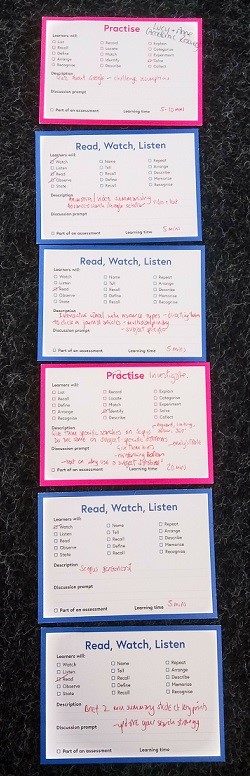 Practise
Lucy + Anne
Learners will:
List
Recall
Define
Arrange
Recognise
Record
Locate
Match
Identify
Describe
Explain
Categorise
Experiment
Solve
Collect
Description
Quiz About Google - challenging assumptions
Discussion prompt
Part of an assessment
Learning time
5-10 mins
Read, Watch, Listen
Learners will:
Watch
Listen
Read
Observe
State
Name
Tell
Recall
Define
Recall
Repeat
Arrange
Describe
Memorise
Recognise
Description
Animation/video summarising
Discussion prompt
Part of an assessment
Learning time
5 mins
Read, Watch, Listen
Learners will:
Watch
Listen
Read
Observe
State
Name
Tell
Recall
Define
Recall
Repeat
Arrange
Describe
Memorise
Recognise
Description
Interactive wheel with resource types - directing them
to journal articles - multidisciplinary
- subject specific
Discussion prompt
Part of an assessment
Learning time
5 mins
Practise Investigate
Learners will:
List
Recall
Define
Arrange
Recognise
Record
Locate
Match
Identify
Describe
Explain
Categorise
Experiment
Solve
Collect
Description
Give them specific searches on Scopus
Do the same on subject specific databases
Discussion prompt
Part of an assessment
Learning time
20 mins
Read, Watch, Listen
Learners will:
Watch
Listen
Read
Observe
State
Name
Tell
Recall
Define
Recall
Repeat
Arrange
Describe
Memorise
Recognise
Description
Scopus
Discussion prompt
Part of an assessment
Learning time
5 mins
Read, Watch, Listen
Learners will:
Watch
Listen
Read
Observe
State
Name
Tell
Recall
Define
Recall
Repeat
Arrange
Describe
Memorise
Recognise
Description
2 min summary slide of key points
Discussion prompt
your search strategy
Part of an assessment
Learning time